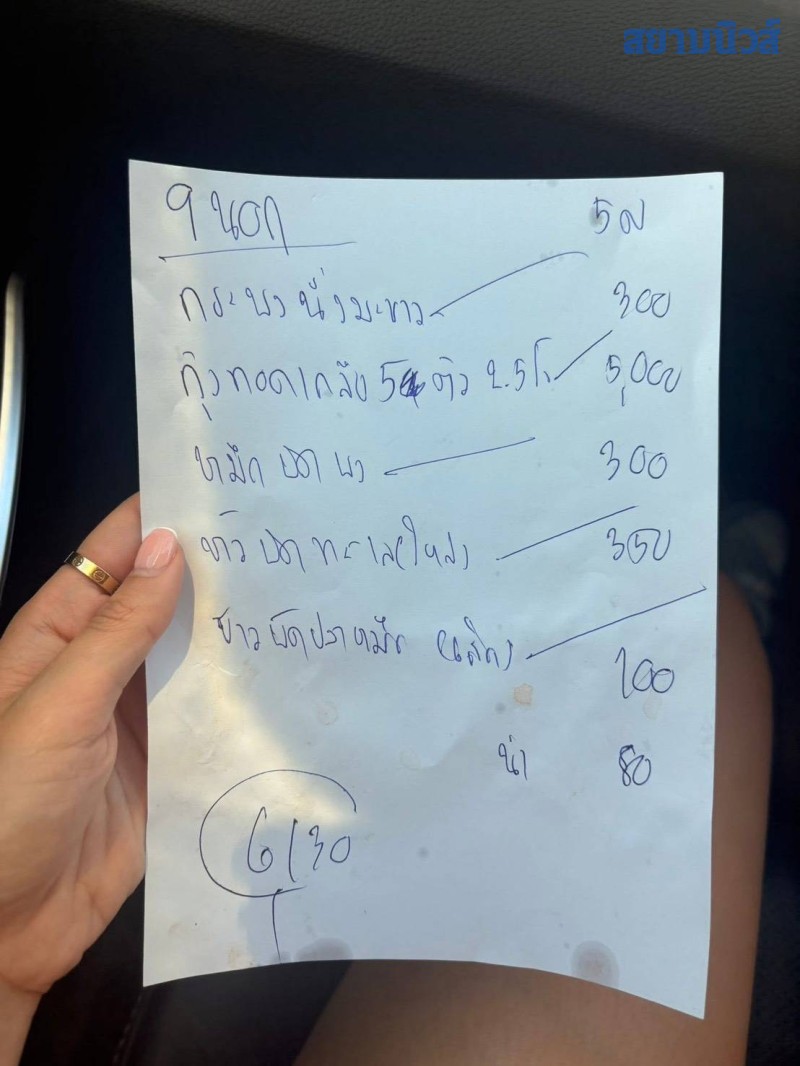 สยามนิวส์
9 นอก 5 ค
กระพง นึ่งมะนาว 300
กุ้งทอดเกลือ 5 ตัว 2.5 โล 5,000
หมึก ผัด ผง 300
ผัด ทะเล 350
ข้าว ผัดปลาหมึก (เล็ก) 100
น้ำ 80
6130